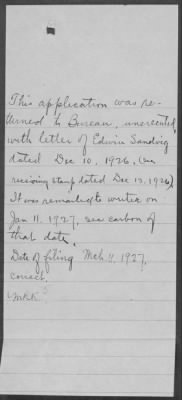 This application was re-
turned to Bureau, unexecuted,
with letter of Edwin Sandvig
dated Dec 10, 1926, (our
receiving stamp dated Dec 13, 1926).
It was remailed to writer on
Jan 11, 1927, see carbon of
that date.
Date of filing Mch 11, 1927,
correct.